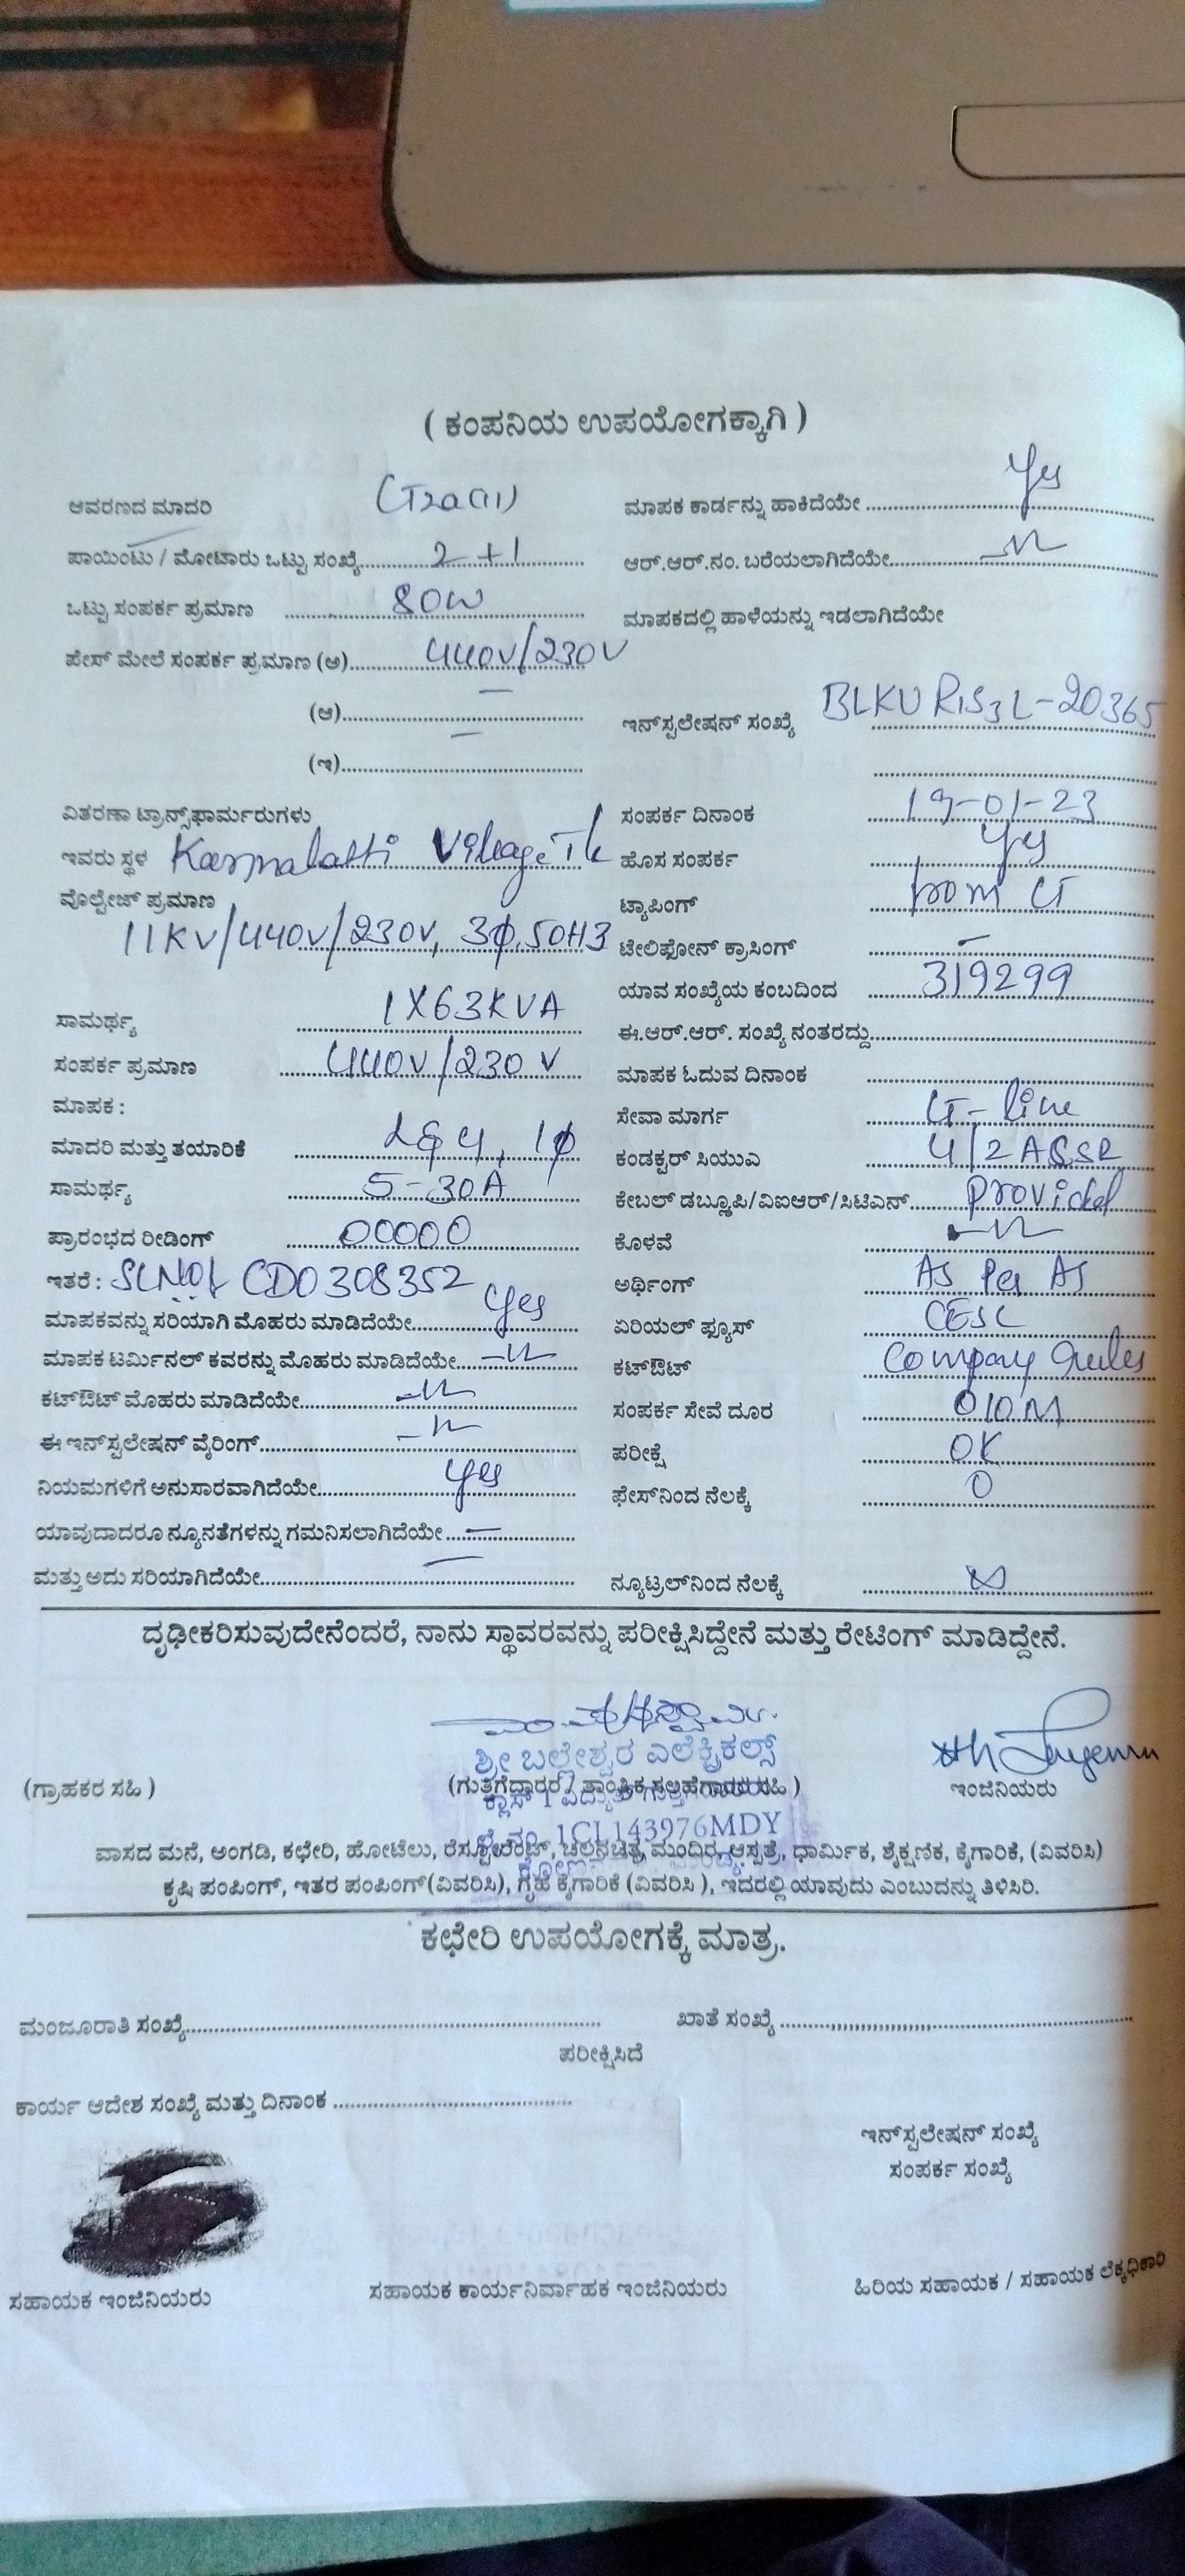 ( ಕಂಪನಿಯ ಉಪಯೋಗಕ್ಕಾಗಿ )
ಆವರಣದ ಮಾದರಿ
ಪಾಯಿಂಟು / ಮೋಟಾರು ಒಟ್ಟು ಸಂಖ್ಯೆ 2+1
ಒಟ್ಟು ಸಂಪರ್ಕ ಪ್ರಮಾಣ 80W
ಪೇಸ್ ಮೇಲೆ ಸಂಪರ್ಕ ಪ್ರಮಾಣ (ಅ) 440V/230V
(ಆ) —
(ಇ) —
ವಿತರಣಾ ಟ್ರಾನ್ಸ್‌ಫಾರ್ಮರುಗಳು
ಇವರು ಸ್ಥಳ Village
ವೊಲ್ಟೇಜ್ ಪ್ರಮಾಣ
11KV/440V/230V, 3ϕ,50H3
ಸಾಮರ್ಥ್ಯ 1X63KVA
ಸಂಪರ್ಕ ಪ್ರಮಾಣ 440V/230V
ಮಾಪಕ :
ಮಾದರಿ ಮತ್ತು ತಯಾರಿಕೆ 1ϕ
ಸಾಮರ್ಥ್ಯ 5-30A
ಪ್ರಾರಂಭದ ರೀಡಿಂಗ್ 00000
ಇತರೆ : CD0308352
ಮಾಪಕವನ್ನು ಸರಿಯಾಗಿ ಮೊಹರು ಮಾಡಿದೆಯೇ yes
ಮಾಪಕ ಟರ್ಮಿನಲ್ ಕವರನ್ನು ಮೊಹರು ಮಾಡಿದೆಯೇ
ಕಟ್‌ಔಟ್ ಮೊಹರು ಮಾಡಿದೆಯೇ
ಈ ಇನ್‌ಸ್ಟಲೇಷನ್ ವೈರಿಂಗ್
ನಿಯಮಗಳಿಗೆ ಅನುಸಾರವಾಗಿದೆಯೇ yes
ಯಾವುದಾದರೂ ನ್ಯೂನತೆಗಳನ್ನು ಗಮನಿಸಲಾಗಿದೆಯೇ —
ಮತ್ತು ಅದು ಸರಿಯಾಗಿದೆಯೇ —
ಮಾಪಕ ಕಾರ್ಡನ್ನು ಹಾಕಿದೆಯೇ Yes
ಆರ್.ಆರ್.ನಂ. ಬರೆಯಲಾಗಿದೆಯೇ
ಮಾಪಕದಲ್ಲಿ ಹಾಳೆಯನ್ನು ಇಡಲಾಗಿದೆಯೇ
ಇನ್‌ಸ್ಟಲೇಷನ್ ಸಂಖ್ಯೆ
ಸಂಪರ್ಕ ದಿನಾಂಕ 19-01-23
ಹೊಸ ಸಂಪರ್ಕ Yes
ಟ್ಯಾಪಿಂಗ್
ಟೇಲಿಫೋನ್ ಕ್ರಾಸಿಂಗ್ —
ಯಾವ ಸಂಖ್ಯೆಯ ಕಂಬದಿಂದ 319299
ಈ.ಆರ್.ಆರ್. ಸಂಖ್ಯೆ ನಂತರದ್ದು
ಮಾಪಕ ಓದುವ ದಿನಾಂಕ
ಸೇವಾ ಮಾರ್ಗ LT-line
ಕಂಡಕ್ಟರ್ ಸಿಯುಎ
ಕೇಬಲ್ ಡಬ್ಲೂಪಿ/ವಿಐಆರ್/ಸಿಟಿಎನ್
ಕೊಳವೆ
ಅರ್ಥಿಂಗ್ As Per
ಏರಿಯಲ್ ಫ್ಯೂಸ್ CESC
ಕಟ್‌ಔಟ್ Company
ಸಂಪರ್ಕ ಸೇವೆ ದೂರ
ಪರೀಕ್ಷೆ OK
ಫೇಸ್‌ನಿಂದ ನೆಲಕ್ಕೆ 0
ನ್ಯೂಟ್ರಲ್‌ನಿಂದ ನೆಲಕ್ಕೆ
ದೃಢೀಕರಿಸುವುದೇನೆಂದರೆ, ನಾನು ಸ್ಥಾವರವನ್ನು ಪರೀಕ್ಷಿಸಿದ್ದೇನೆ ಮತ್ತು ರೇಟಿಂಗ್ ಮಾಡಿದ್ದೇನೆ.
ಶ್ರೀ ಬಲ್ಲೇಶ್ವರ ಎಲೆಕ್ಟ್ರಿಕಲ್ಸ್
(ಗ್ರಾಹಕರ ಸಹಿ ) (ಗುತ್ತಿಗೆದ್ದಾರರ / ತಾಂತ್ರಿಕ ಸಲಹೆಗಾರರ ಸಹಿ ) ಇಂಜಿನಿಯರು
1CL143976MDY
ವಾಸದ ಮನೆ, ಅಂಗಡಿ, ಕಛೇರಿ, ಹೋಟೆಲು, ರೆಸ್ಟೋರೆಂಟ್, ಚಲನಚಿತ್ರ, ಮಂದಿರ, ಆಸ್ಪತ್ರೆ, ಧಾರ್ಮಿಕ, ಶೈಕ್ಷಣಿಕ, ಕೈಗಾರಿಕೆ, (ವಿವರಿಸಿ)
ಕೃಷಿ ಪಂಪಿಂಗ್, ಇತರ ಪಂಪಿಂಗ್(ವಿವರಿಸಿ), ಗೃಹ ಕೈಗಾರಿಕೆ (ವಿವರಿಸಿ ), ಇದರಲ್ಲಿ ಯಾವುದು ಎಂಬುದನ್ನು ತಿಳಿಸಿರಿ.
ಕಛೇರಿ ಉಪಯೋಗಕ್ಕೆ ಮಾತ್ರ.
ಮಂಜೂರಾತಿ ಸಂಖ್ಯೆ ಖಾತೆ ಸಂಖ್ಯೆ
ಪರೀಕ್ಷಿಸಿದೆ
ಕಾರ್ಯ ಆದೇಶ ಸಂಖ್ಯೆ ಮತ್ತು ದಿನಾಂಕ
ಇನ್‌ಸ್ಟಲೇಷನ್ ಸಂಖ್ಯೆ
ಸಂಪರ್ಕ ಸಂಖ್ಯೆ
ಸಹಾಯಕ ಇಂಜಿನಿಯರು ಸಹಾಯಕ ಕಾರ್ಯನಿರ್ವಾಹಕ ಇಂಜಿನಿಯರು ಹಿರಿಯ ಸಹಾಯಕ / ಸಹಾಯಕ ಲೆಕ್ಕಧಿಕಾರಿ